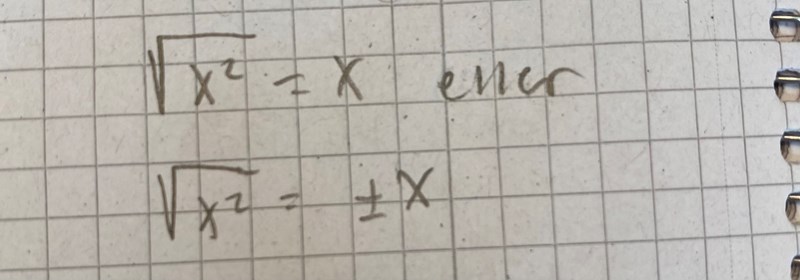 √x² = x eller
√x² = ±x